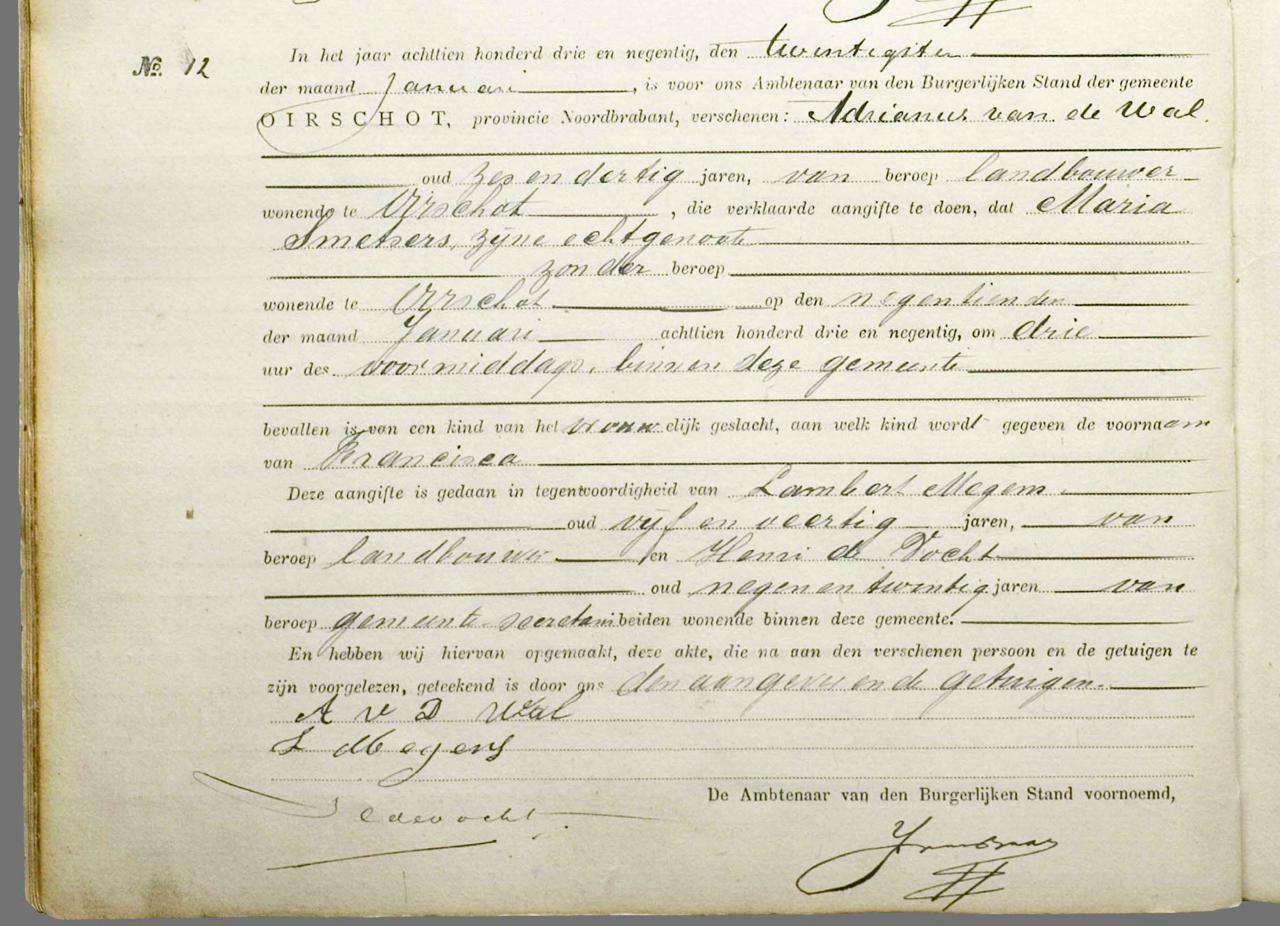 In het jaar achttien honderd drie en negentig, den twintigsten
№. 12
der maand Januari, is voor ons Ambtenaar van den Burgerlijken Stand der gemeente
OIRSCHOT, provincie Noordbrabant, verschenen: Adrianus van de Wal.
oud zes en dertig jaren, van beroep landbouwer
wonende te Oirschot, die verklaarde aangifte te doen, dat Maria
Smetsers, zijne echtgenoote
zonder beroep
wonende te Oirschot op den negentienden
der maand Januari achttien honderd drie en negentig, om drie
uur des voormiddags, binnen deze gemeente
bevallen is van een kind van het vrouwelijk geslacht, aan welk kind wordt gegeven de voornaam
van Francisca
Deze aangifte is gedaan in tegenwoordigheid van Lambert Megens
oud vijf en veertig jaren, van
beroep landbouwer en Henri de Vocht
oud negen en twintig jaren van
beroep gemeente-secretaris beiden wonende binnen deze gemeente.
En hebben wij hiervan opgemaakt, deze akte, die na aan den verschenen persoon en de getuigen te
zijn voorgelezen, geteekend is door ons den aangever en de getuigen.
A v D Wal
L Megens
De Ambtenaar van den Burgerlijken Stand voornoemd,
devocht